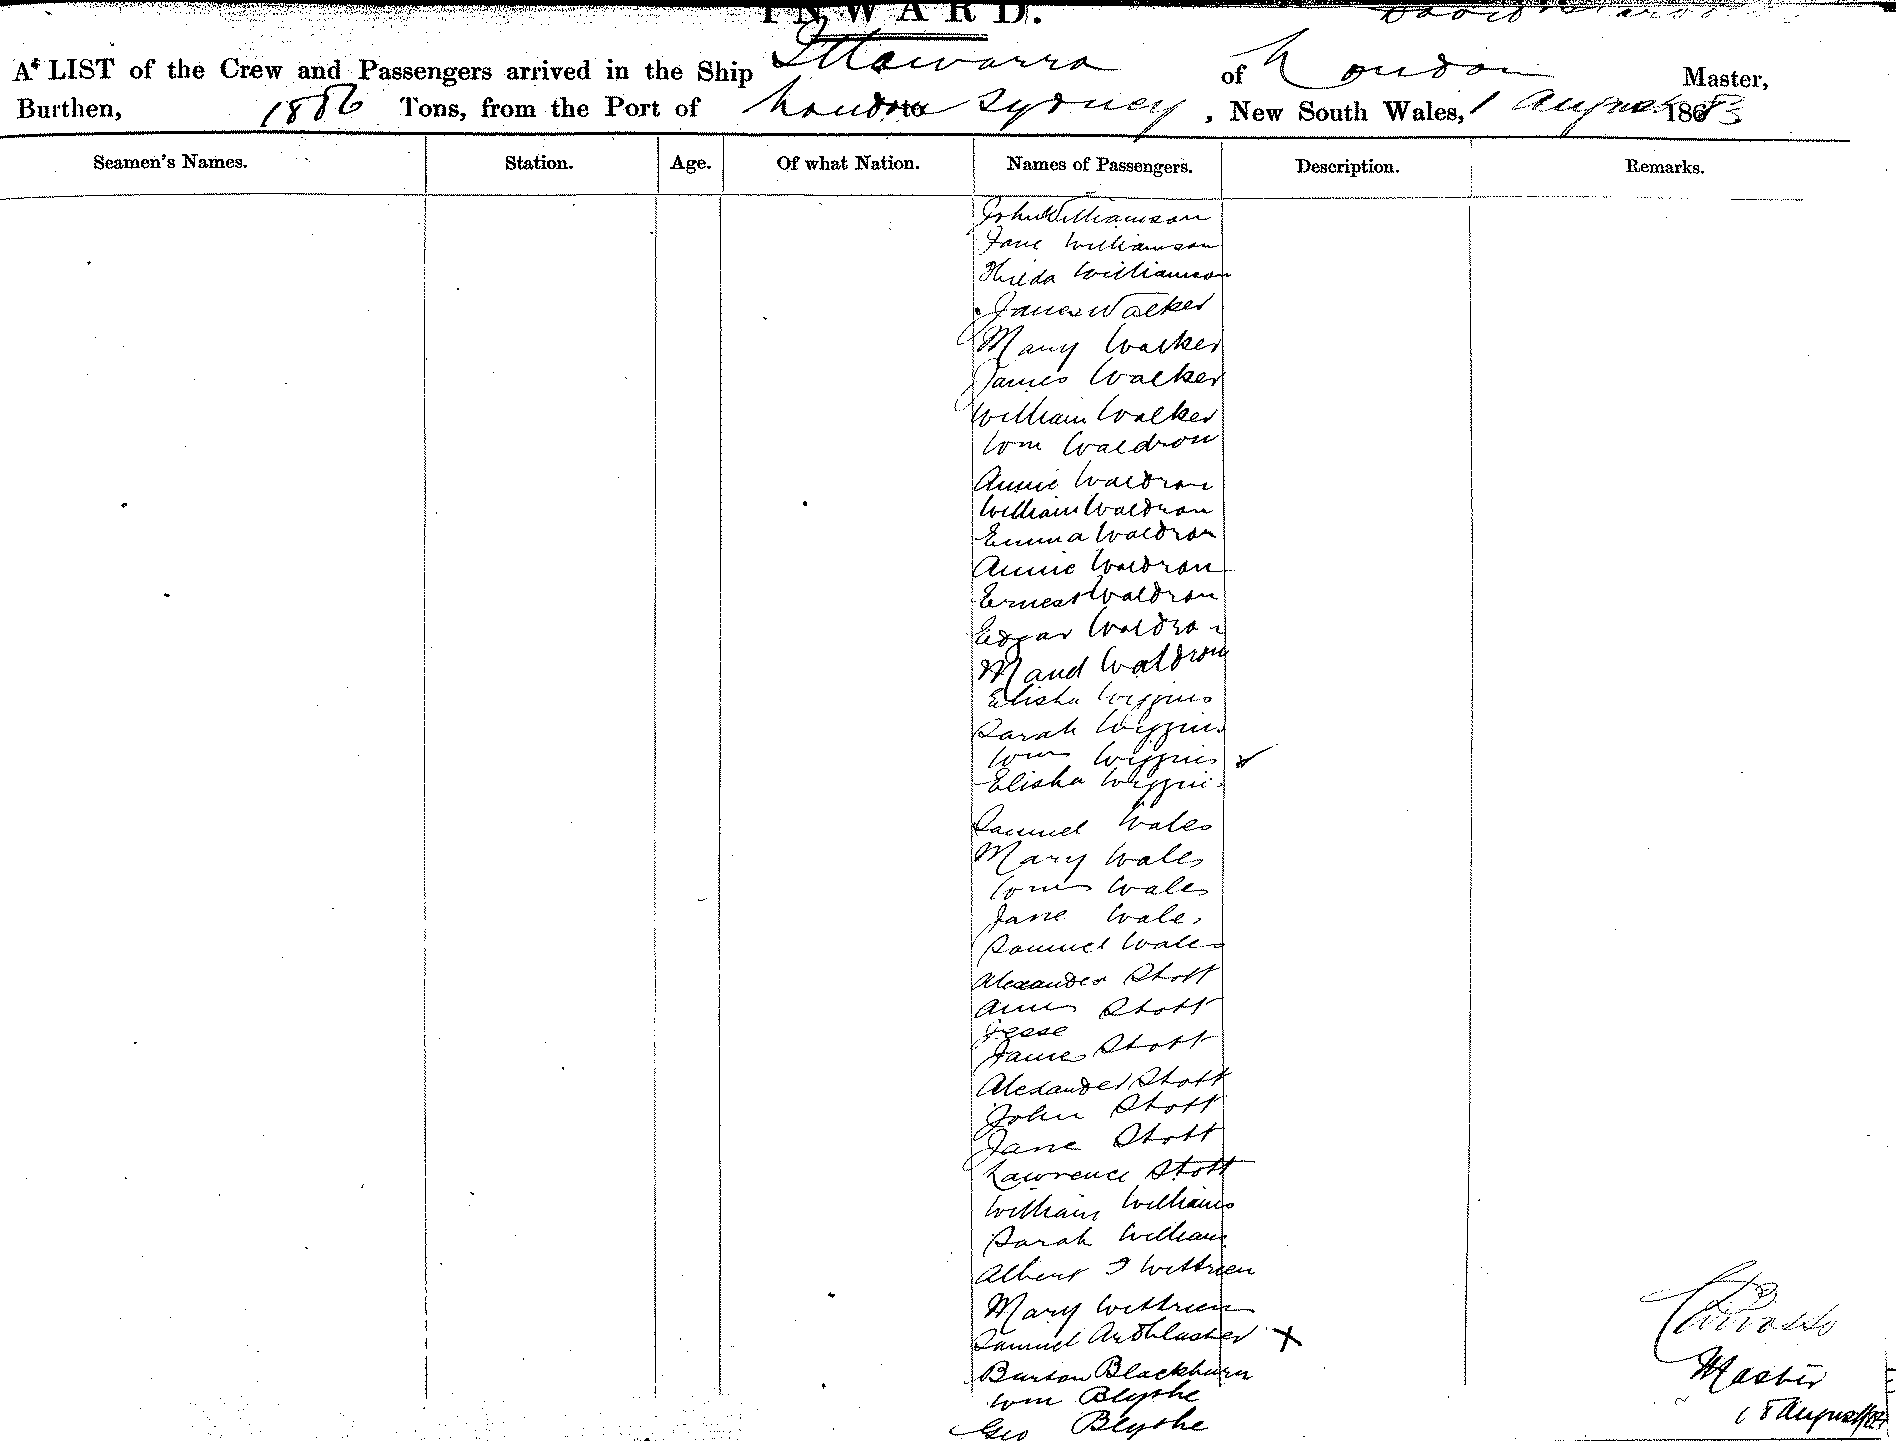 INWARD.
A LIST of the Crew and Passengers arrived in the Ship Illawarra of London Master,
Burthen, 1886 Tons, from the Port of London to Sydney, New South Wales, 1 August 1883
Seamen's Names. Station. Age. Of what Nation. Names of Passengers. Description. Remarks.
John Williamson
Jane Williamson
Hilda Williamson
James Walker
Mary Walker
James Walker
William Walker
Wm Waldron
Annie Waldron
William Waldron
Emma Waldron
Annie Waldron
Ernest Waldron
Edgar Waldron
Maud Waldron
Elisha Wiggins
Sarah Wiggins
Wm Wiggins
Elisha Wiggins
Samuel Wales
Mary Wales
Wm Wales
Jane Wales
Samuel Wales
Alexander Stott
Ann Stott
Jesse
James Stott
Alexander Stott
John Stott
Jane Stott
Lawrence Stott
William Williams
Sarah Williams
Albert J Wittrien
Mary Wittrien
Samuel Ardblaster X
Burton Blackburn
Wm Blythe
Geo Blythe
Master
18 August